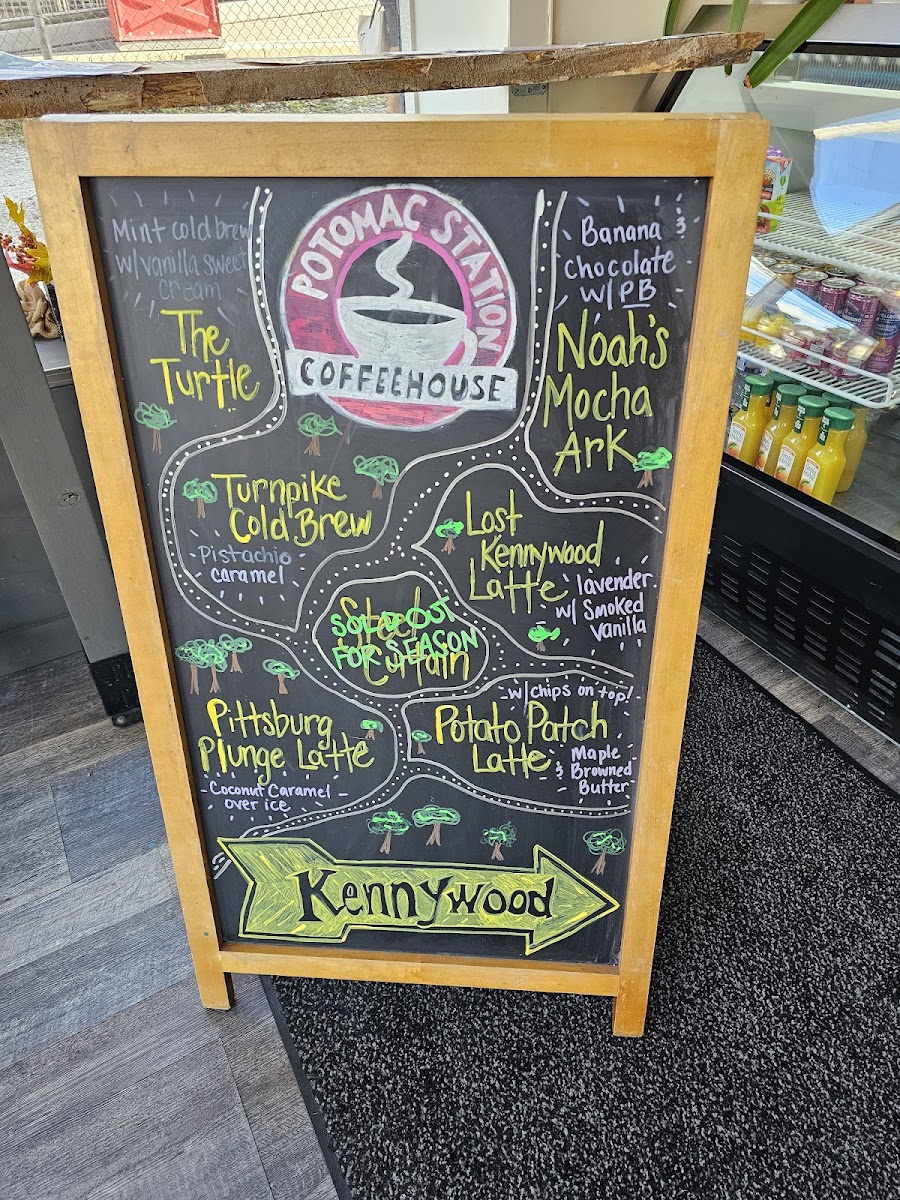 POTOMAC STATION
COFFEEHOUSE
Mint cold brew
w/vanilla sweet
cream
The
Turtle
Banana &
chocolate
w/ PB
Noah's
Mocha
Ark
Turnpike
Cold Brew
Pistachio
caramel
Lost
Kennywood
Latte
lavender
w/ Smoked
vanilla
Steel
Curtain
SOLD OUT
FOR SEASON
Pittsburg
Plunge Latte
-Coconut Caramel-
over ice
w/chips on top!
Potato Patch
Latte
Maple
& Browned
Butter
Kennywood